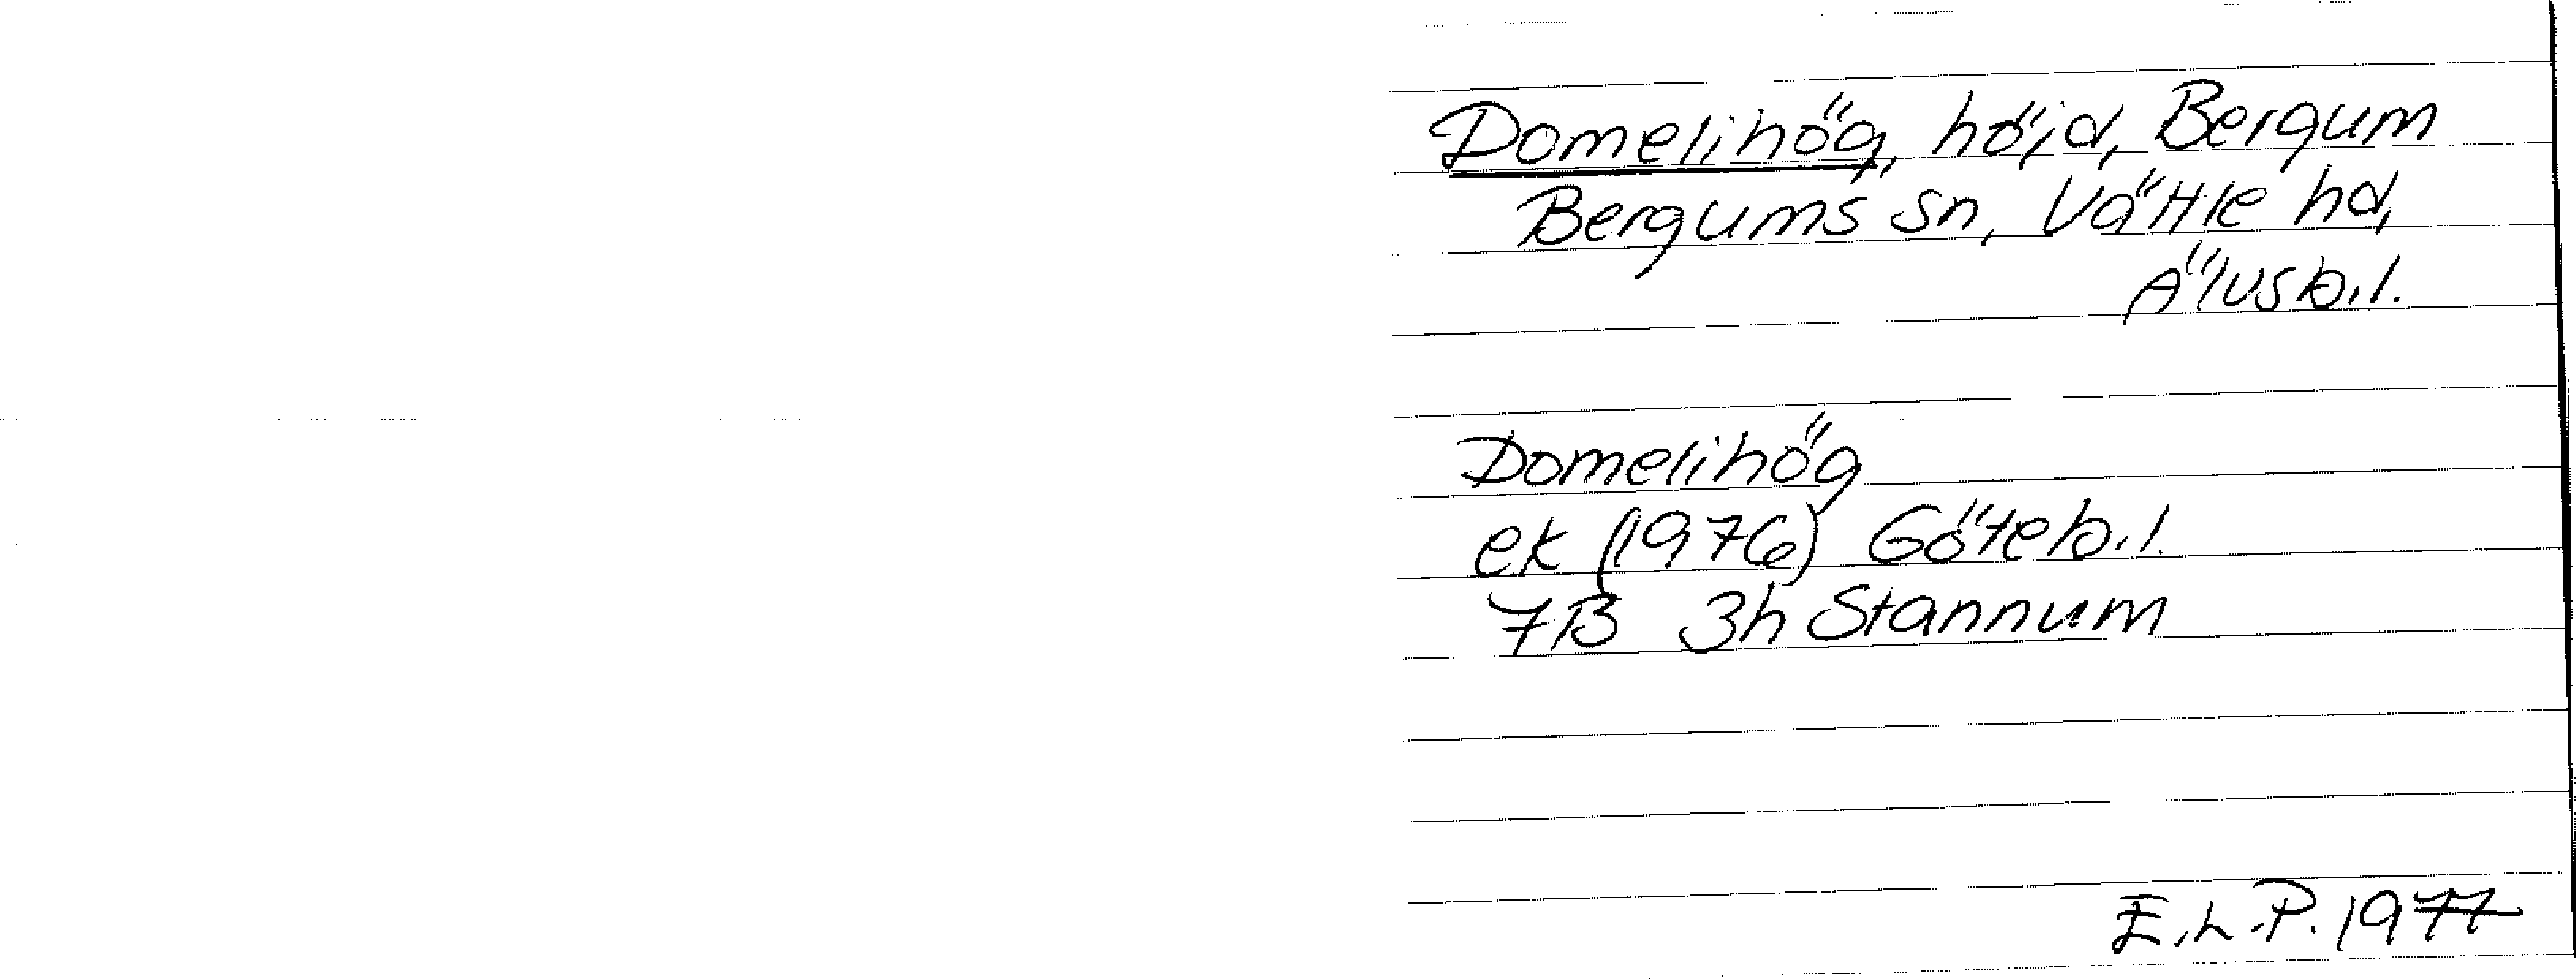 Domelihög, höjd, Bergum
Bergums sn, Vättle hd,
Älvsb.l.
Domelihög
ek (1976) Göteb.l.
7B 3h Stannum
E.L.P. 1977